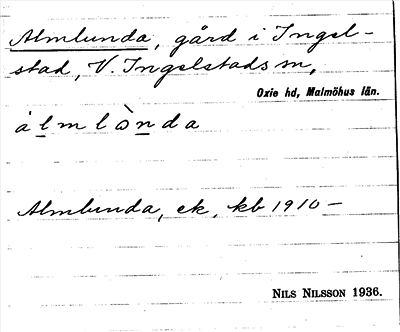 Almlunda, gård i Ingel-
stad, V. Ingelstads sn,
Oxie hd, Malmöhus län.
àlmlònda
Almlunda, ek, kb 1910 –
Nils Nilsson 1936.